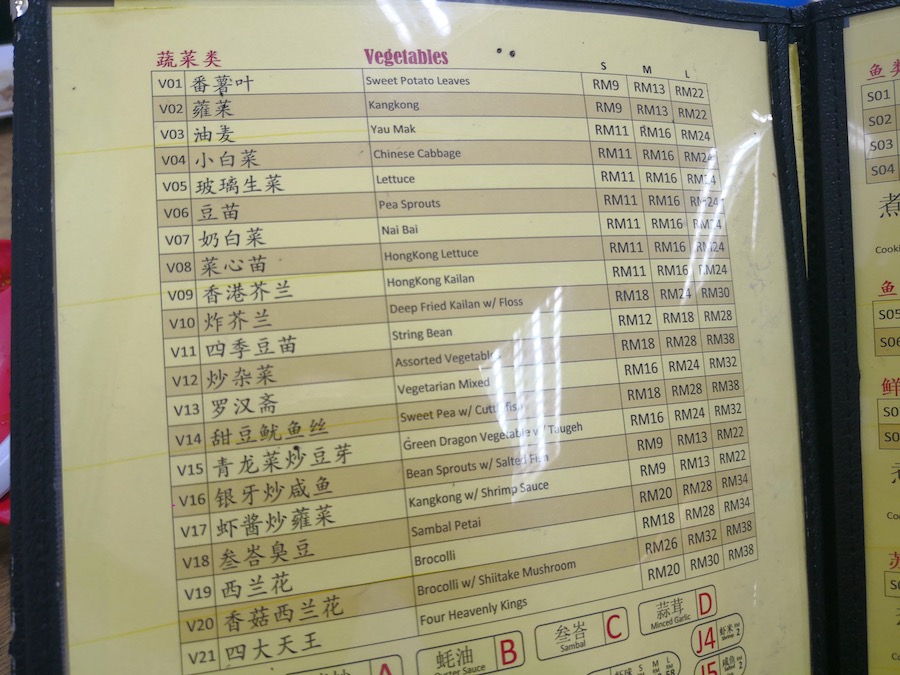 蔬菜类 Vegetables S M L
V01 番薯叶 Sweet Potato Leaves RM9 RM13 RM22
V02 蕹菜 Kangkong RM9 RM13 RM22
V03 油麦 Yau Mak RM11 RM16 RM24
V04 小白菜 Chinese Cabbage RM11 RM16 RM24
V05 玻璃生菜 Lettuce RM11 RM16 RM24
V06 豆苗 Pea Sprouts RM11 RM16 RM24
V07 奶白菜 Nai Bai RM11 RM16 RM24
V08 菜心苗 HongKong Lettuce RM11 RM16 RM24
V09 香港芥兰 HongKong Kailan RM11 RM16 RM24
V10 炸芥兰 Deep Fried Kailan w/ Floss RM18 RM24 RM30
V11 四季豆苗 String Bean RM12 RM18 RM28
V12 炒杂菜 Assorted Vegetables RM18 RM28 RM38
V13 罗汉斋 Vegetarian Mixed RM16 RM24 RM32
V14 甜豆鱿鱼丝 Sweet Pea w/ Cuttlefish RM18 RM28 RM38
V15 青龙菜炒豆芽 Green Dragon Vegetable w/ Taugeh RM16 RM24 RM32
V16 银牙炒咸鱼 Bean Sprouts w/ Salted Fish RM9 RM13 RM22
V17 虾酱炒蕹菜 Kangkong w/ Shrimp Sauce RM9 RM13 RM22
V18 叁峇臭豆 Sambal Petai RM20 RM28 RM34
V19 西兰花 Brocolli RM18 RM28 RM34
V20 香菇西兰花 Brocolli w/ Shiitake Mushroom RM26 RM32 RM38
V21 四大天王 Four Heavenly Kings RM20 RM30 RM38
A
蚝油 B
Oyster Sauce
叁峇 C
Sambal
蒜茸 D
Minced Garlic
J4 虾米 RM 2
Shrimp
J5 咸鱼 2
虾球 S M L
鱼类
S01
S02
S03
S04
煮
Cooki
鱼
S05
S06
鲜